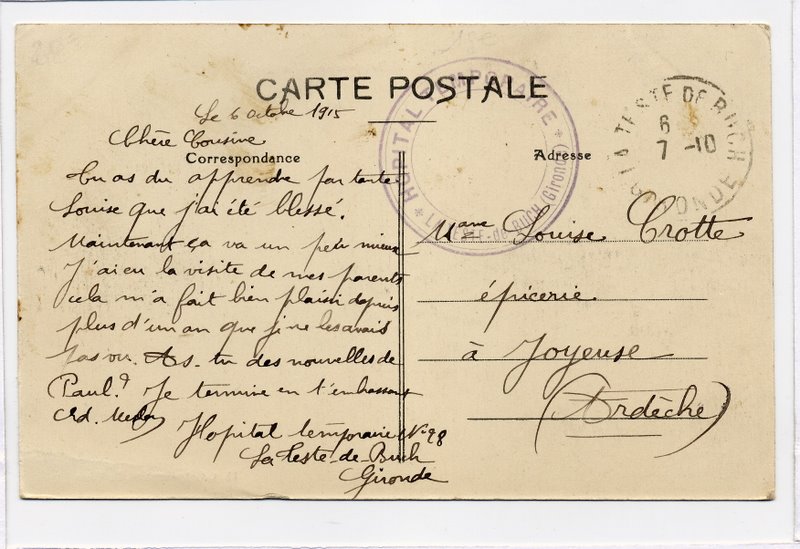 CARTE POSTALE
Le 6 octobre 1915
Chère Cousine
Correspondance
Tu as du apprendre par tante
Louise que j'ai été blessé.
Maintenant ça va un peu mieux
J'ai eu la visite de mes parents
cela m'a fait bien plaisir depuis
plus d'un an que je ne les avais
pas vu. As-tu des nouvelles de
Paul? Je termine en t'embrassant
Ed.
Hopital temporaire N°98
La Teste-de-Buch
Gironde
HOPITAL TEMPORAIRE
* LA TESTE-de-BUCH (Gironde) *
LA TESTE DE BUCH
6
7 -10
GIRONDE
Adresse
Mame Louise Crotte
épicerie
à Joyeuse
(Ardèche)